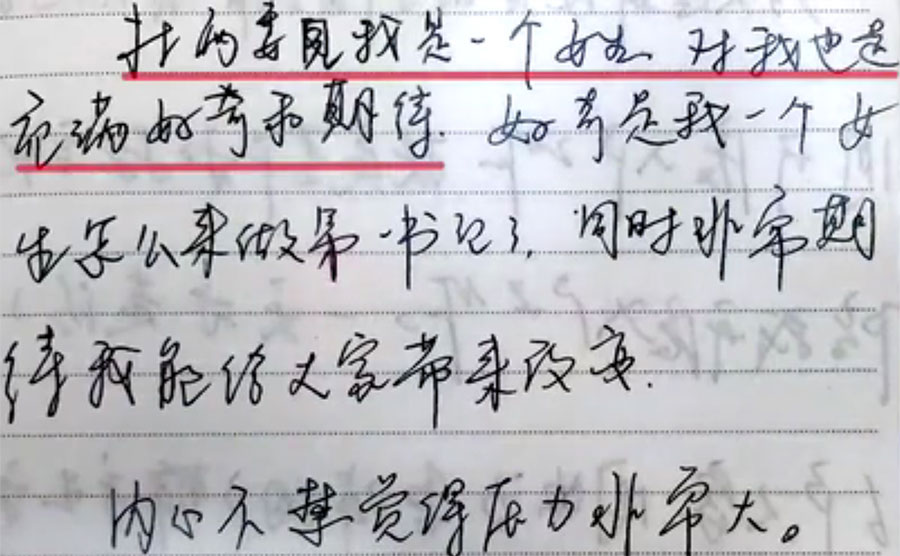 村两委见我是一个女生 对我也是
充满好奇和期待. 好奇是我一个女
生怎么来做第一书记了, 同时非常期
待我能给大家带来改变.
内心不禁觉得压力非常大。